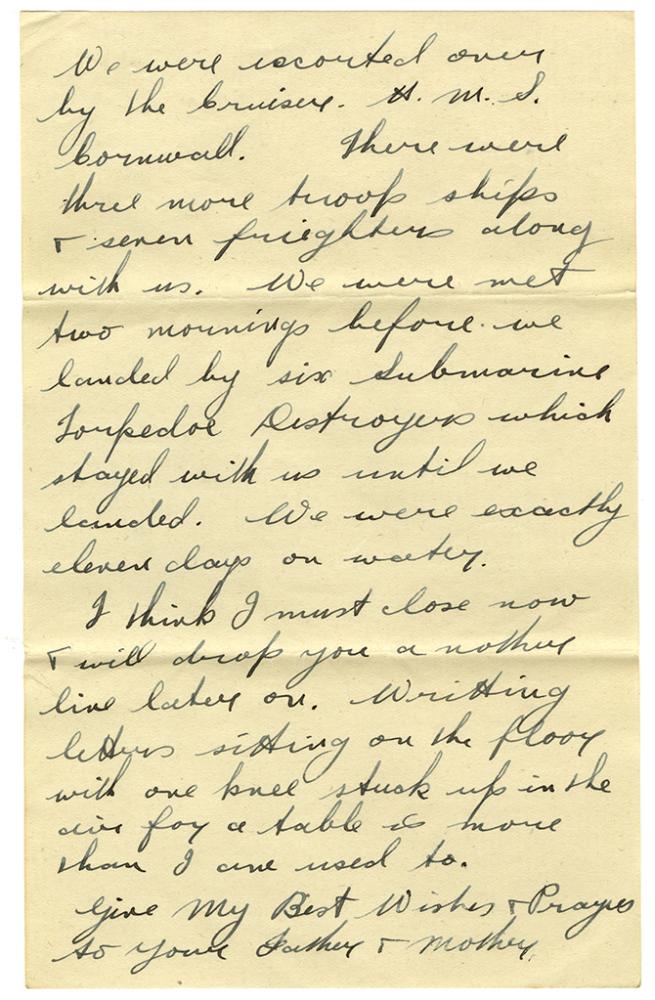 We were escorted over
by the Cruiser. H. M. S.
Cornwall. There were
three more troop ships
& seven frieghters along
with us. We were met
two mornings before we
landed by six Submarine
Torpedoe Destroyers which
stayed with us until we
landed. We were exactly
eleven days on water.
I think I must close now
& will drop you a nother
line later on. Writting
letters sitting on the floor
with one knee stuck up in the
air for a table is more
than I are used to.
Give My Best Wishes & Prayers
to your Father & Mother.